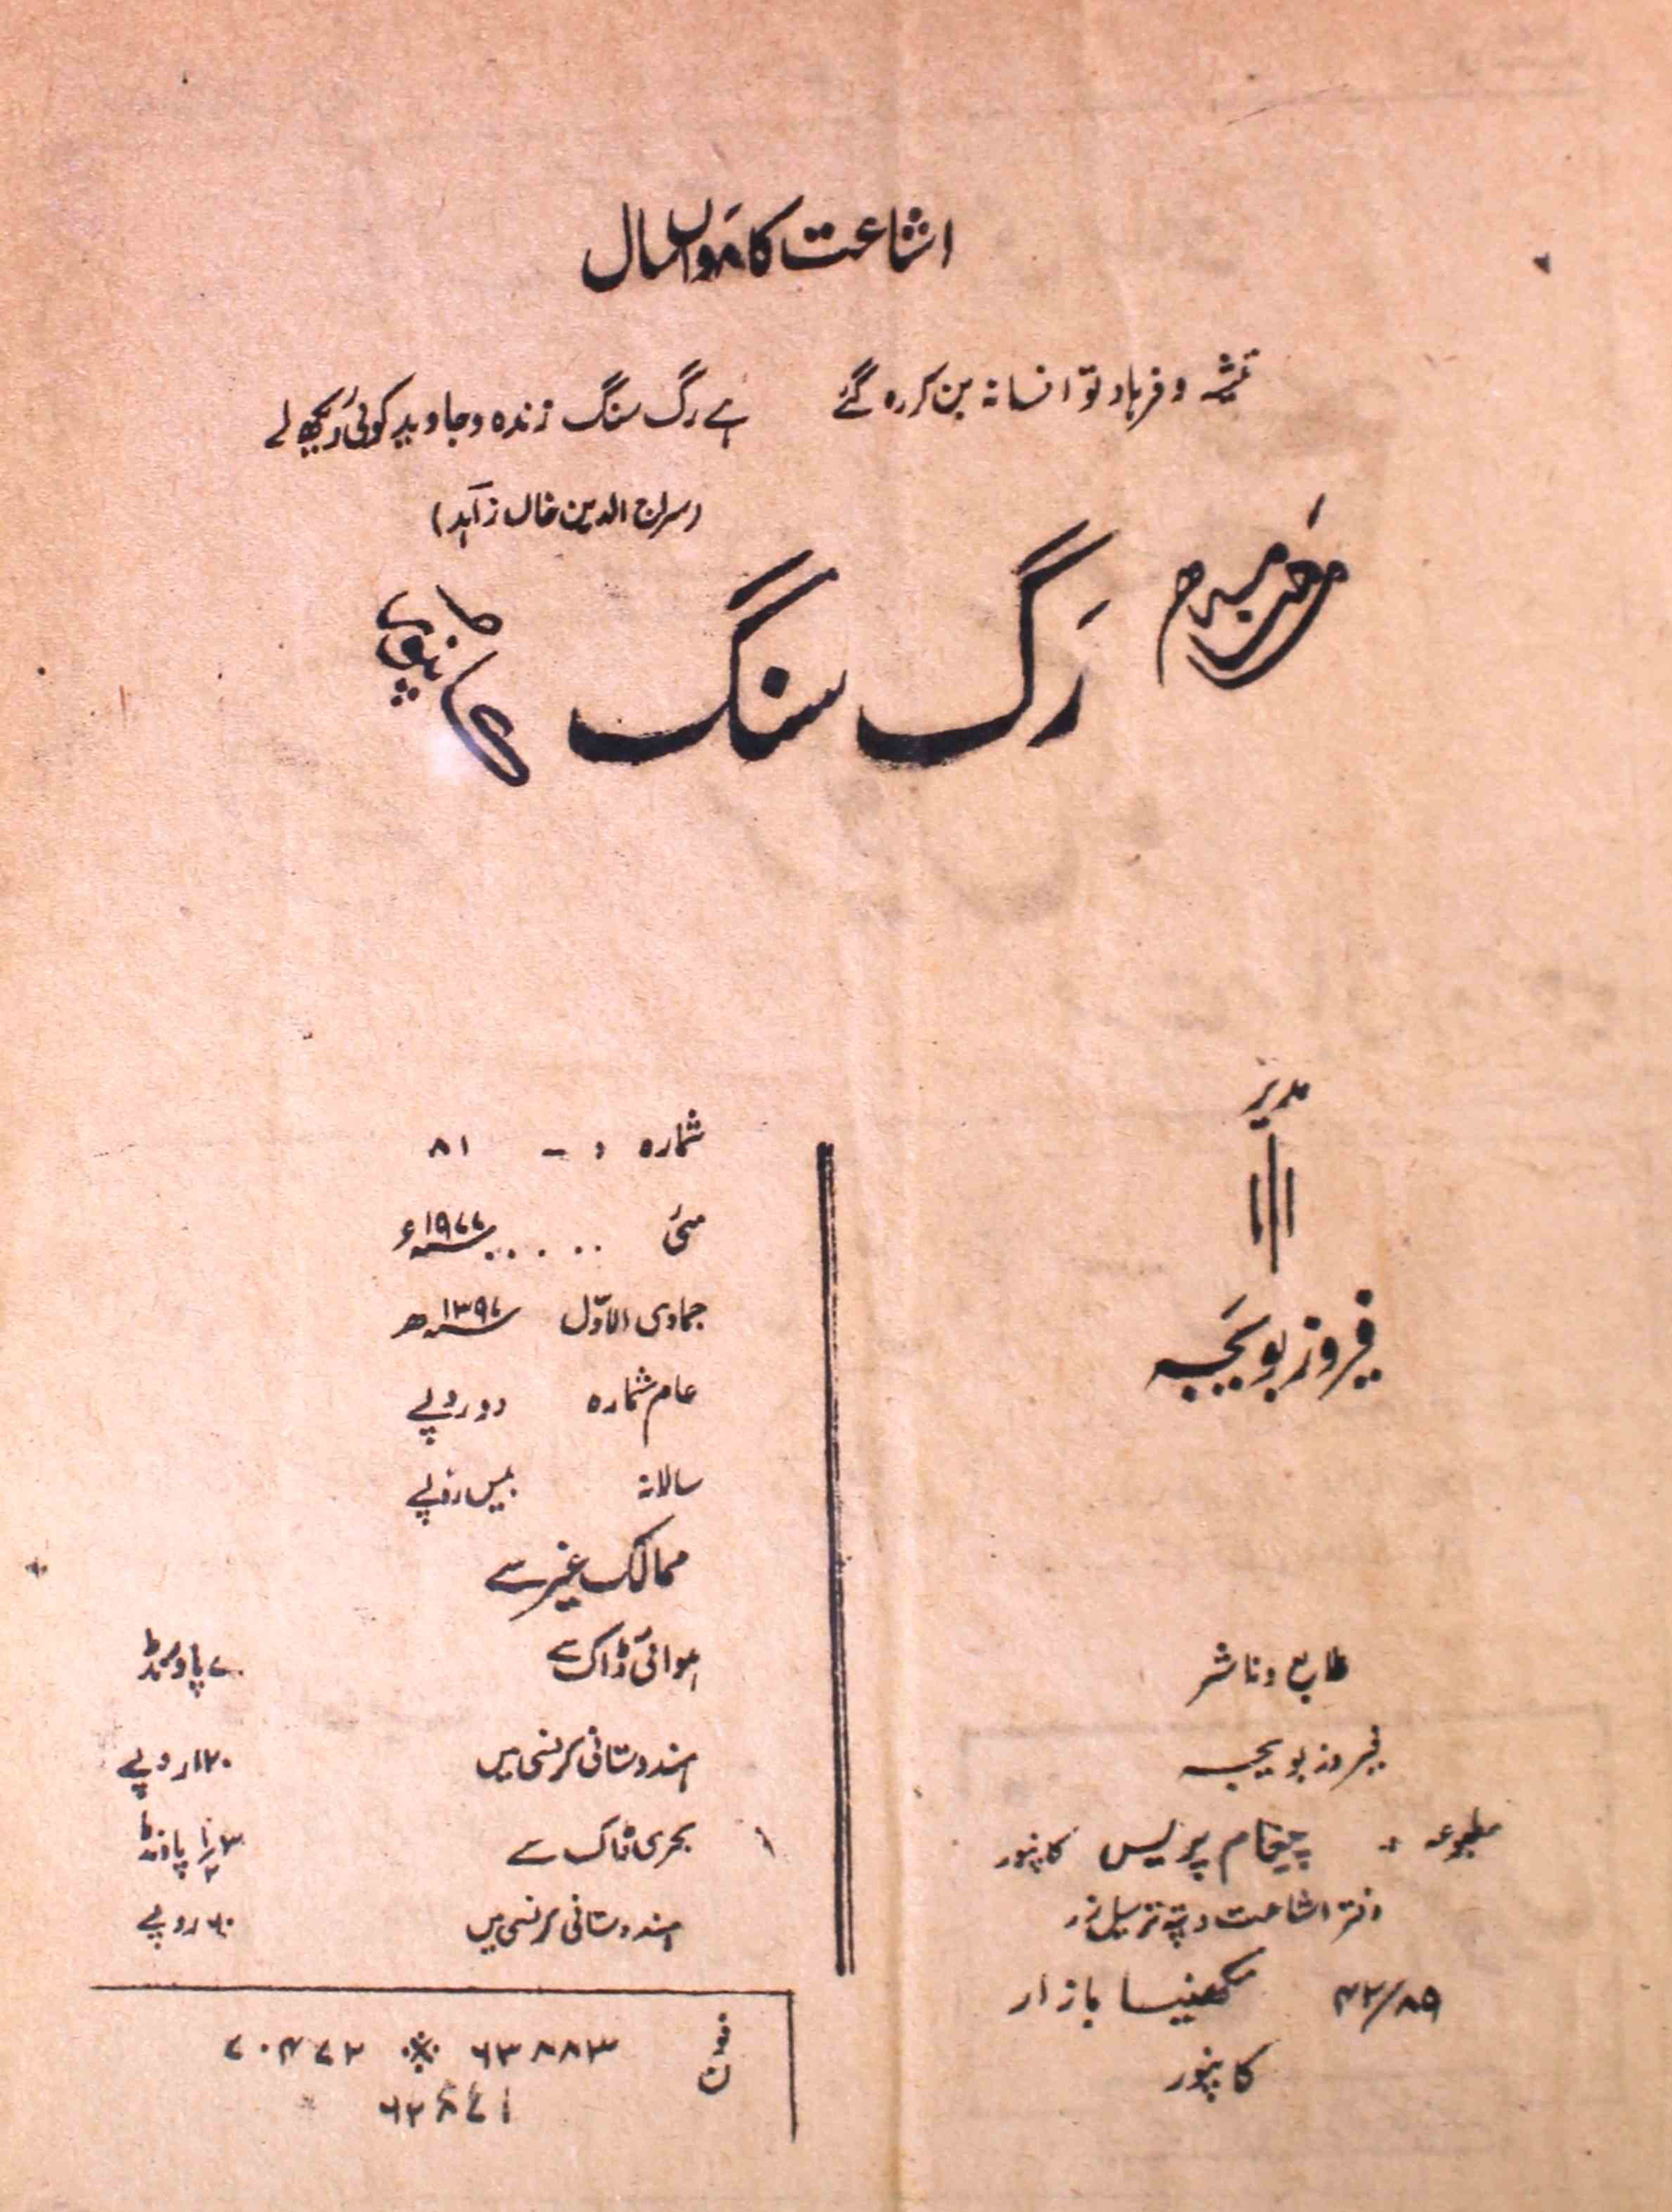 اشاعت کا ۸واں سال
تیشہ و فرہاد تو افسانہ بن کر رہ گئے
اے رگ سنگ زندہ و جاوید کوئی دیکھ لے
(سراج الدین خاں زاہد)
رگ سنگ
کانپور
مدیر
فیروز بویجہ
طابع و ناشر
فیروز بویجہ
مطبوعہ : پیغام پریس کانپور
دفتر اشاعت و پتہ ترسیل زر
۴۲/۸۵ مکھنیا بازار
کانپور
شمارہ :- ۸۱
مئی ..... ۱۹۷۷ء
جمادی الاوّل ۱۳۹۷ھ
عام شمارہ دو روپے
سالانہ بیس روپے
ممالک غیر سے
ہوائی ڈاک سے ۷ پاؤنڈ
ہندوستانی کرنسی میں ۱۲۰ روپے
بحری ڈاک سے ۳ ۱/۲ پاؤنڈ
ہندوستانی کرنسی میں ۶۰ روپے
فون
۶۳۸۸۳ * ۷۰۴۷۲
۶۲۸۷۱